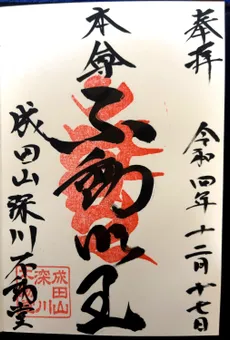 奉拝
令和四年十二月十七日
本尊
不動明王
成田山深川不動堂
成田山
深川